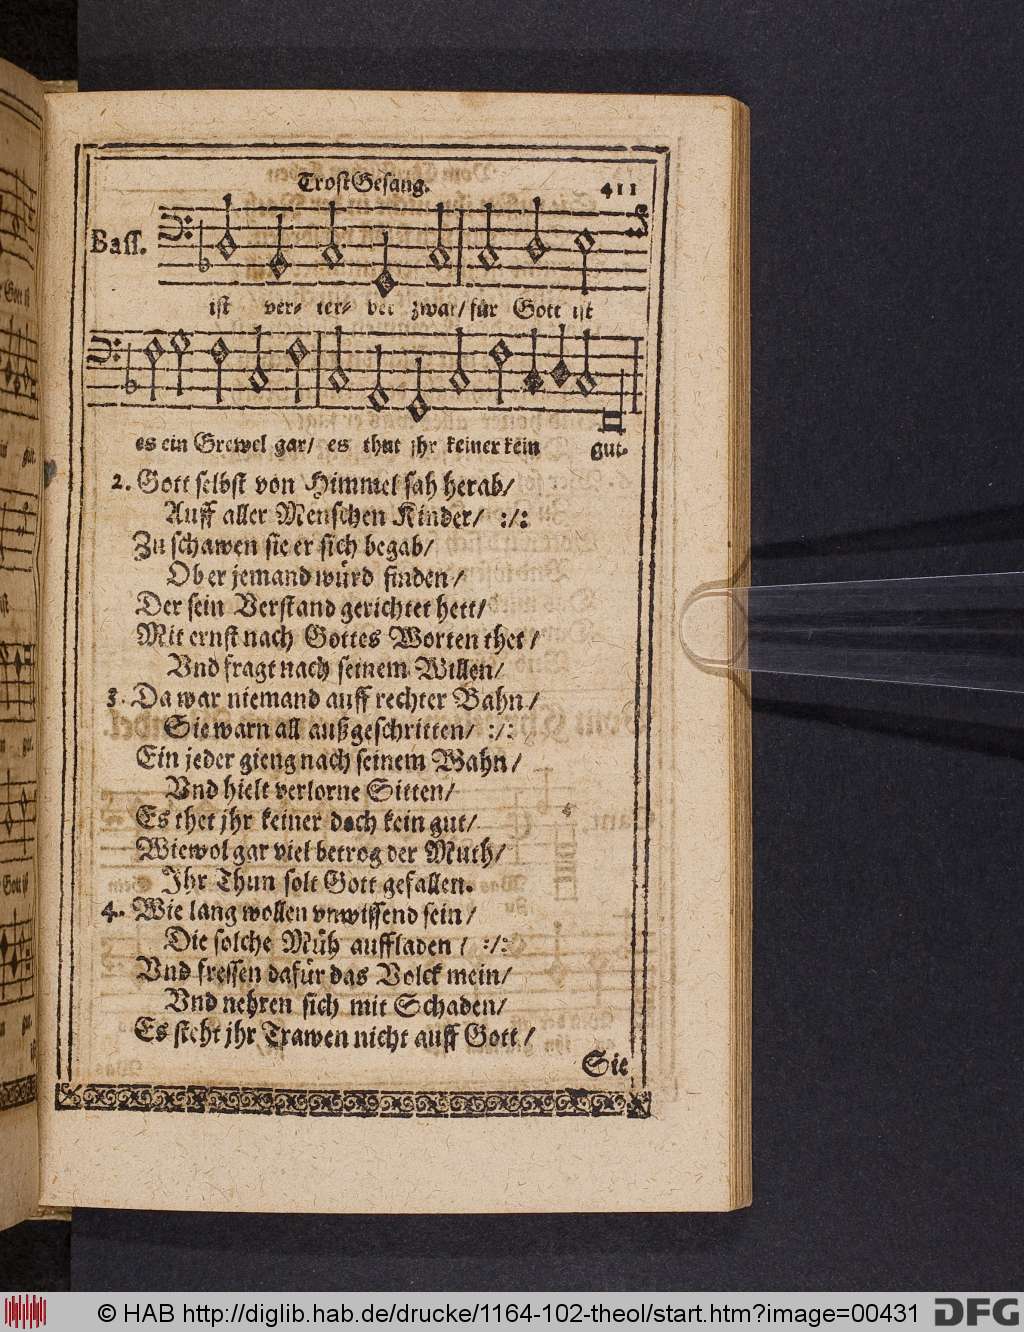 TrostGesang. 411
Bass.
ist ver- ter- bet zwar/ für Gott ist
es ein Grewel gar/ es thut jhr keiner kein gut.
2. Gott selbst von Himmel sah herab/
Auff aller Menschen Kinder/ :/:
Zu schawen sie er sich begab/
Ob er jemand würd finden/
Der sein Verstand gerichtet hett/
Mit ernst nach Gottes Worten thet/
Vnd fragt nach seinem Willen/
3. Da war niemand auff rechter Bahn/
Sie warn all außgeschritten/ :/:
Ein jeder gieng nach seinem Wahn/
Vnd hielt verlorne Sitten/
Es thet jhr keiner doch kein gut/
Wiewol gar viel betrog der Muth/
Jhr Thun solt Gott gefallen.
4. Wie lang wollen vnwissend sein/
Die solche Müh auffladen/ :/:
Vnd fressen dafür das Volck mein/
Vnd nehren sich mit Schaden/
Es steht jhr Trawen nicht auff Gott/
Sie
© HAB http://diglib.hab.de/drucke/1164-102-theol/start.htm?image=00431
DFG